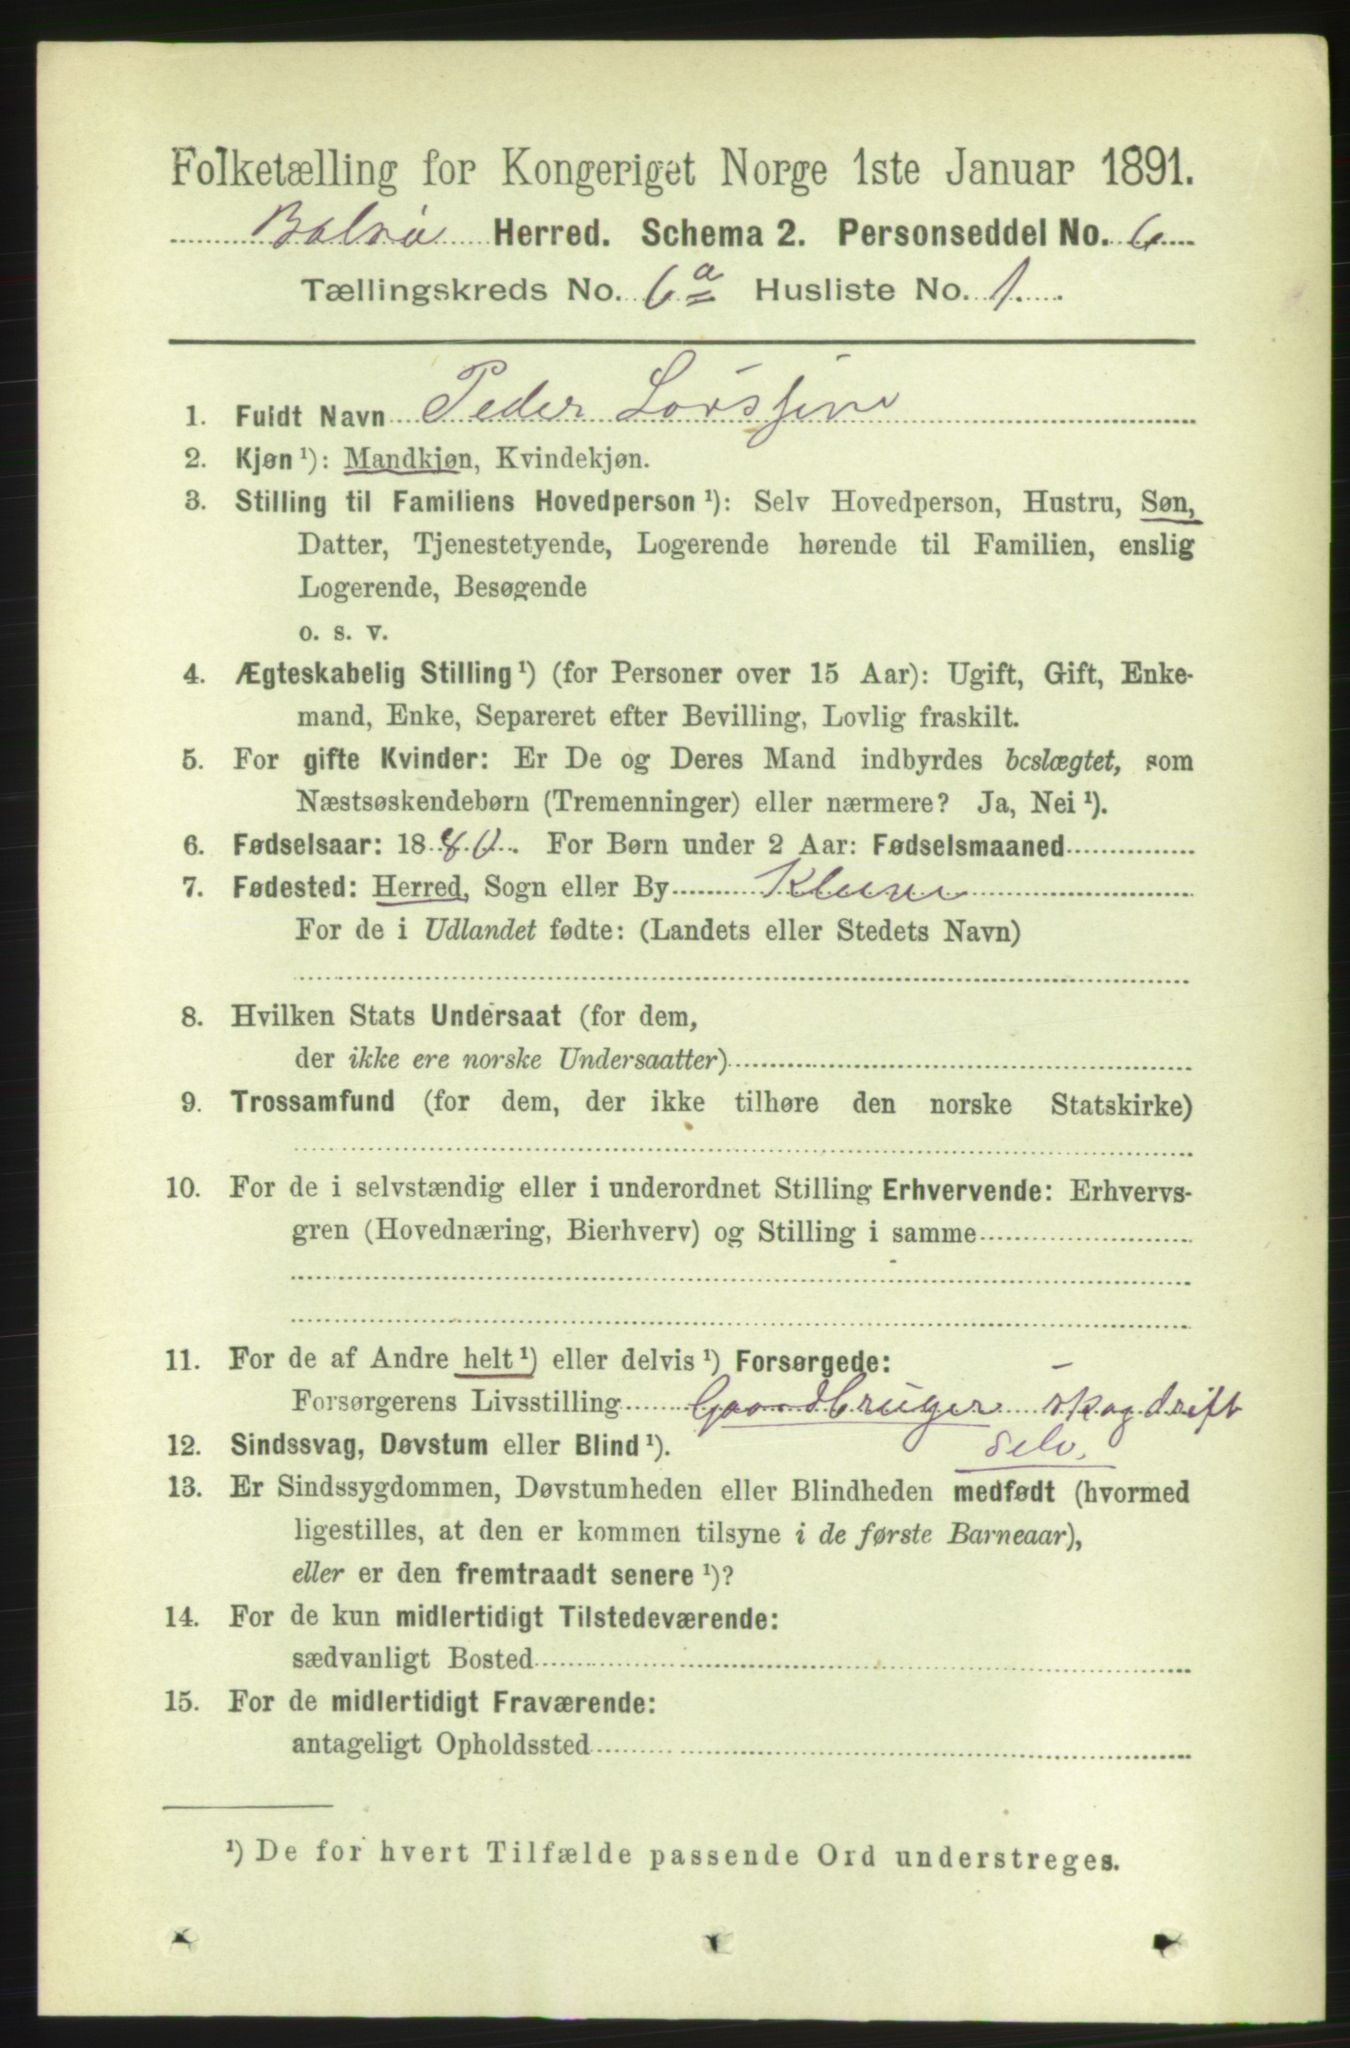 Folketælling for Kongeriget Norge 1ste Januar 1891.
Bolsø Herred. Schema 2. Personseddel No. 6
Tællingskreds No. 6 a Husliste No. 1.
1. Fuldt Navn Peder
2. Kjøn ¹): Mandkjøn, Kvindekjøn.
3. Stilling til Familiens Hovedperson ¹): Selv Hovedperson, Hustru, Søn,
Datter, Tjenestetyende, Logerende hørende til Familien, enslig
Logerende, Besøgende
o. s. v.
4. Ægteskabelig Stilling ¹) (for Personer over 15 Aar): Ugift, Gift, Enke-
mand, Enke, Separeret efter Bevilling, Lovlig fraskilt.
5. For gifte Kvinder: Er De og Deres Mand indbyrdes beslægtet, som
Næstsøskendebørn (Tremenninger) eller nærmere? Ja, Nei ¹).
6. Fødselsaar: 1880. For Børn under 2 Aar: Fødselsmaaned
7. Fødested: Herred, Sogn eller By
For de i Udlandet fødte: (Landets eller Stedets Navn)
8. Hvilken Stats Undersaat (for dem,
der ikke ere norske Undersaatter)
9. Trossamfund (for dem, der ikke tilhøre den norske Statskirke)
10. For de i selvstændig eller i underordnet Stilling Erhvervende: Erhvervs-
gren (Hovednæring, Bierhverv) og Stilling i samme
11. For de af Andre helt ¹) eller delvis ¹) Forsørgede:
Forsørgerens Livsstilling Gaardbruger skogdrift
selv.
12. Sindssvag, Døvstum eller Blind ¹).
13. Er Sindssygdommen, Døvstumheden eller Blindheden medfødt (hvormed
ligestilles, at den er kommen tilsyne i de første Barneaar),
eller er den fremtraadt senere ¹)?
14. For de kun midlertidigt Tilstedeværende:
sædvanligt Bosted
15. For de midlertidigt Fraværende:
antageligt Opholdssted
¹) De for hvert Tilfælde passende Ord understreges.